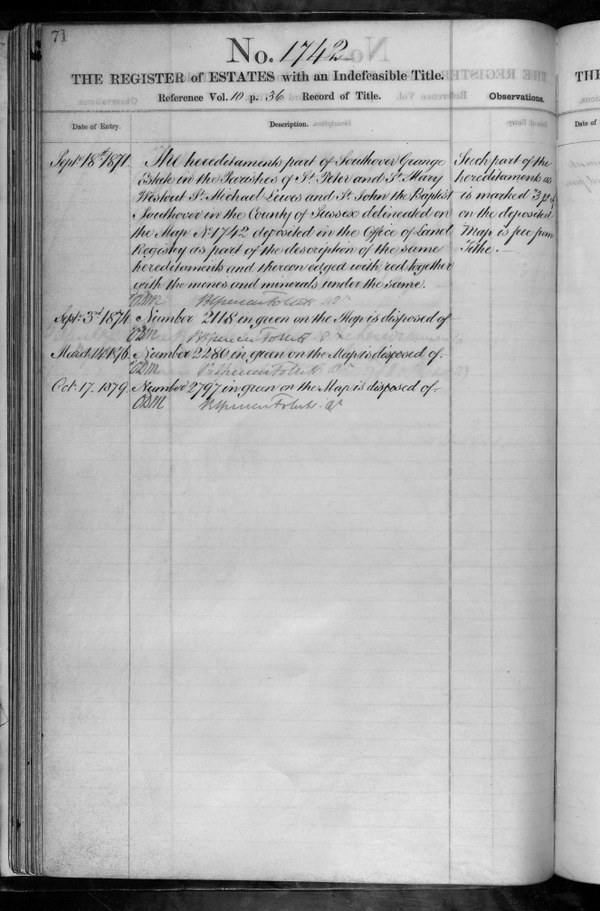 71
No. 1742
THE REGISTER of ESTATES with an Indefeasible Title.
Reference Vol. 10 p. 36 Record of Title.
Observations.
Date of Entry.
Description.
Septr. 18th. 1871.
All hereditaments part of Southover Grange
Estate in the Parishes of St. Peter and St. Mary
Westout St. Michael Lewes and St. John the Baptist
Southover in the County of Sussex delineated on
the Map No. 1742 deposited in the Office of Land
Registry as part of the description of the same
hereditaments and thereon edged with red together
with the mines and minerals under the same.
Such part of the
hereditaments as
is marked 3
on the deposited
Map is free from
Tithe.
Sept. 3rd. 1874.
Number 2118 in green on the Map is disposed of
March 14. 1876.
Number 2280 in green on the Map is disposed of.
Oct. 17. 1879.
Number 2797 in green on the Map is disposed of.
TH
Date of